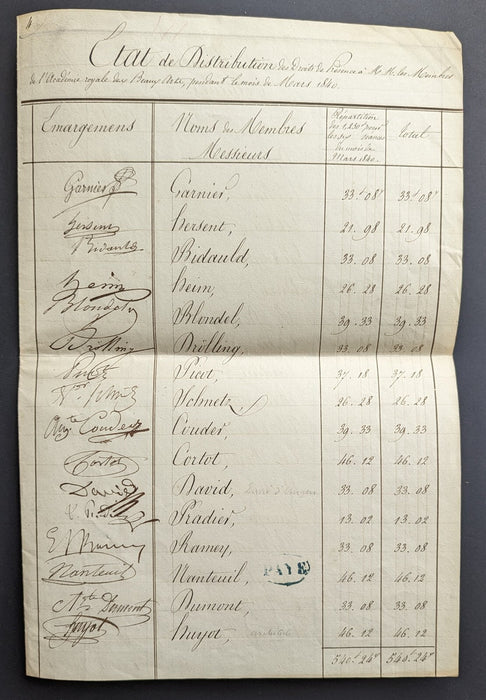 Etat de Distribution des Droits de Présence à M.M. les Membres
de l'Académie royale des Beaux Arts, pendant le mois de Mars 1840.
Emargemens Noms des Membres Répartition Total
Messieurs
mois de
Mars 1840.
Garnier Garnier, 33.f 08c 33.f 08c
hersent hersent, 21. 98 21. 98
Bidauld Bidauld, 33. 08 33. 08
heim heim, 26. 28 26. 28
Blondel Blondel, 39. 33 39. 33
Drolling Drölling, 33. 08 33. 08
Picot Picot, 37. 18 37. 18
Schnetz, 26. 28 26. 28
Couder Couder, 39. 33 39. 33
Cortot Cortot, 46. 12 46. 12
David David, 33. 08 33. 08
Pradier, 13. 02 13. 02
Ramey Ramey, 33. 08 33. 08
Nanteuil Nanteuil, 46. 12 46. 12
PAYÉ
Dumont Dumont, 33. 08 33. 08
huyot huyot, architecte 46. 12 46. 12
540.f 24c 540.f 24c